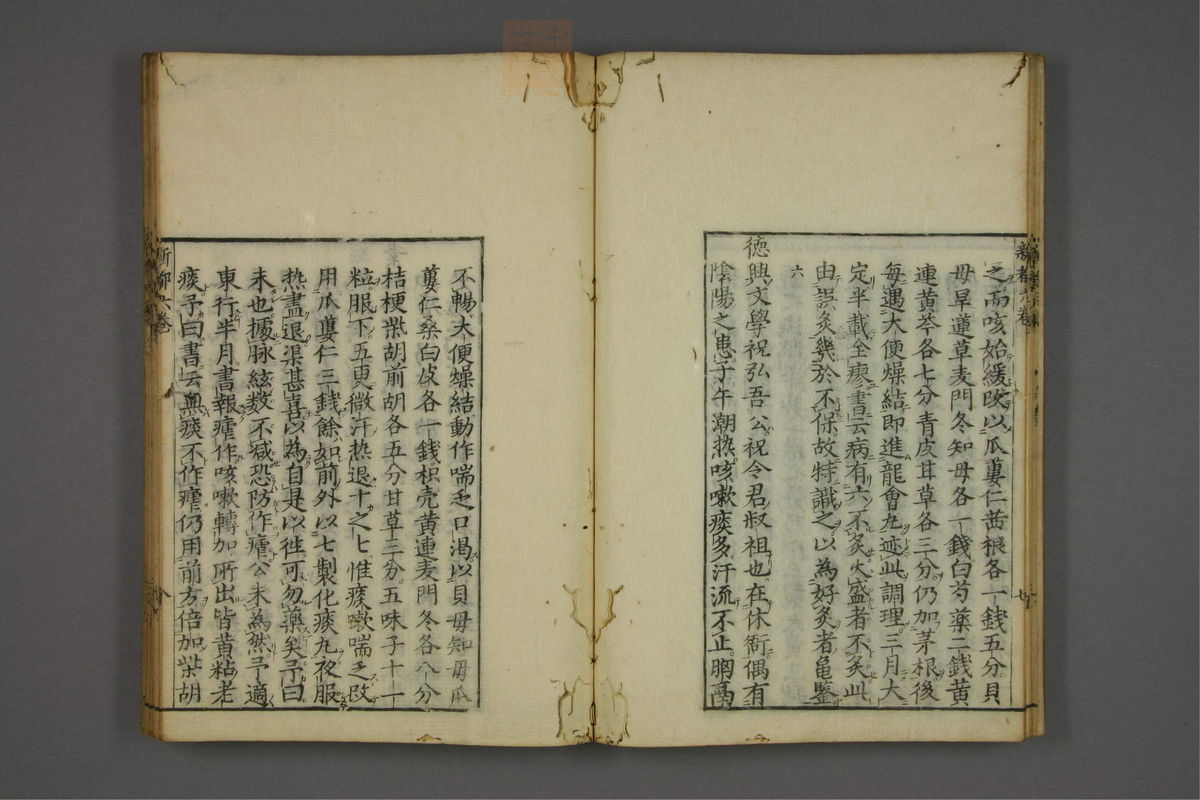 之而咳始緩改以瓜蔞仁茜根各一錢五分貝
母旱蓮草麦門冬知母各一錢白芍薬二錢黄
連黄芩各七分青皮甘草各三分仍加茅根後
每遇大便燥結即進龍會丸迹此調理三月大
定半載全瘳書云病有六不灸火盛者不灸此
由誤灸幾於不保故特識之以為好灸者亀鑒
六
德興文學祝弘吾公祝令君叔祖也在休衙偶有
陰陽之患子午潮热咳嗽痰多汗流不止胸膈
不暢大便燥結動作喘乏口渴以貝母知母瓜
蔞仁桑白皮各一錢枳壳黄連麦門冬各八分
桔梗柴胡前胡各五分甘草三分五味子十一
粒服下五更微汗热退十之七惟痰嗽喘乏改
用瓜蔞仁三錢餘如前外以七製化痰丸夜服
热盡退渠甚喜以為自是以徃可勿藥矣予曰
未也據脉絃数不减恐防作瘧公未為然予適
東行半月書報瘧作咳嗽轉加所出皆黄粘老
痰予曰書云無痰不作瘧仍用前方倍加柴胡
新都六卷